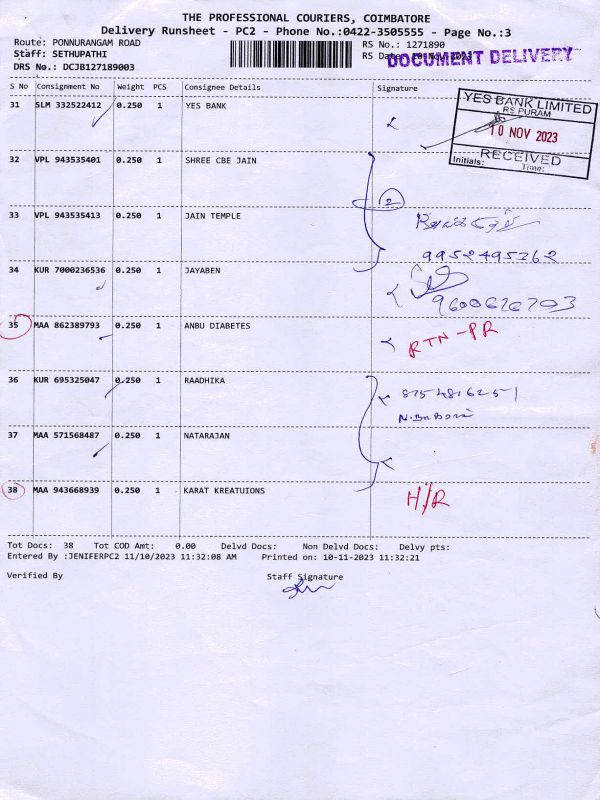 THE PROFESSIONAL COURIERS, COIMBATORE
Delivery Runsheet - PC2 - Phone No.:0422-3505555 - Page No.:3
Route: PONNURANGAM ROAD
RS No.: 1271890
Staff: SETHUPATHI
DOCUMENT DELIVERY
DRS No.: DCJB127189003
S No Consignment No Weight PCS Consignee Details Signature
31 SLM 332522412 0.250 1 YES BANK
YES BANK LIMITED
RS PURAM
10 NOV 2023
RECEIVED
Initials: Time:
32 VPL 943535401 0.250 1 SHREE CBE JAIN
2
33 VPL 943535413 0.250 1 JAIN TEMPLE
9952495262
34 KUR 7000236536 0.250 1 JAYABEN
9600626703
35 MAA 862389793 0.250 1 ANBU DIABETES
RTN-PR
36 KUR 695325047 0.250 1 RAADHIKA
8754816251
37 MAA 571568487 0.250 1 NATARAJAN
38 MAA 943668939 0.250 1 KARAT KREATUIONS
H/R
Tot Docs: 38 Tot COD Amt: 0.00 Delvd Docs: Non Delvd Docs: Delvy pts:
Entered By :JENIFERPC2 11/10/2023 11:32:08 AM Printed on: 10-11-2023 11:32:21
Verified By Staff Signature